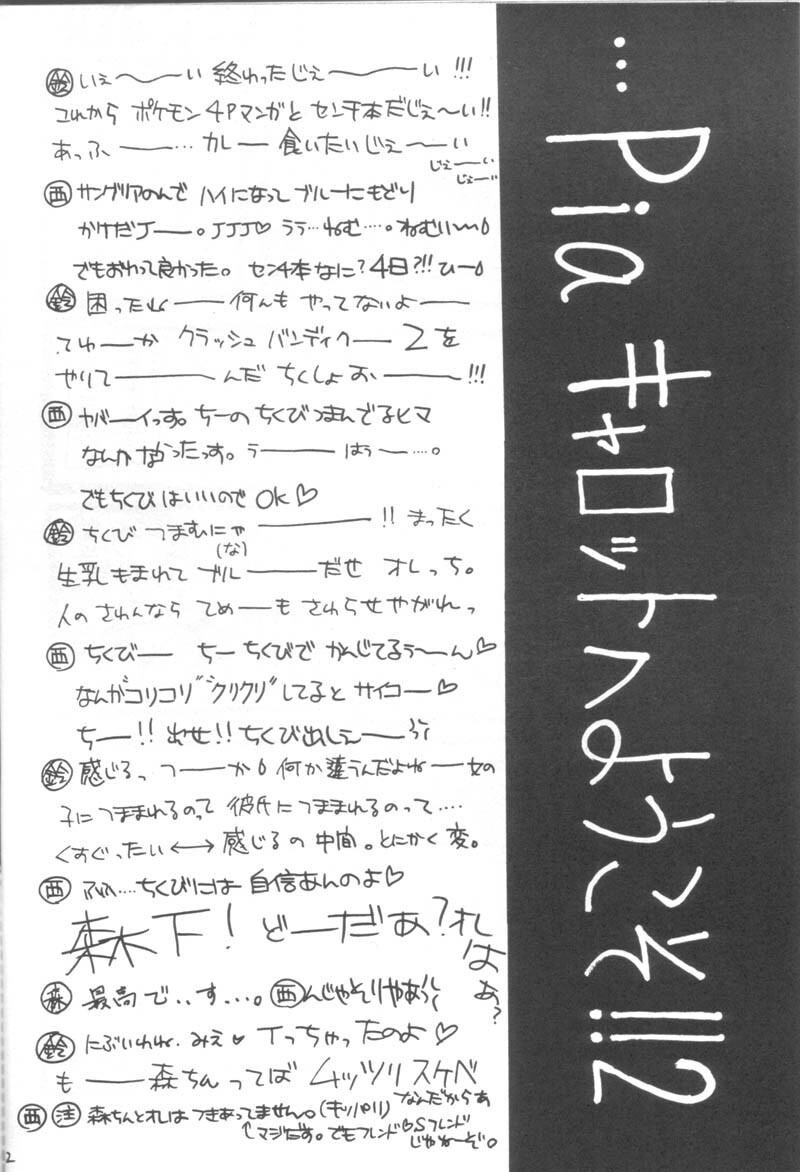 …Piaキャロットへようこそ!!2
鈴 いぇ〜〜い 終わったじぇ〜〜〜い!!!
これから ポケモン 4Pマンガと センチ本だじぇ〜い!!
あっふ——… カレー 食いたいじぇ〜〜い
じぇ〜い
じぇ〜い
西 サングリアのんで ハイになって ブルーにもどり
かけだJ——。JJJ♡ ララ…ねむ…。ねむい〜
でもおわって良かった。センチ本なに?4日?!!ひー
鈴 困ったね—— 何んも やってないよ——
てゆ——か クラッシュ バンディクー 2を
やりて————んだ ちくしょお———!!!
西 ヤバーイっす。ちーの ちくびつまんでるヒマ
なんかなかったっす。う—— はぅ——…。
でもちくびはいいので OK♡
鈴 ちくび つまむにゃ————!! まったく
(な)
生乳もまれて ブル———だぜ オレっち。
人の さわんなら てめーも さわらせやがれっ
西 ちくびー ちー ちくびで かんじてるぅ〜〜ん♡
なんかコリコリ クリクリしてると サイコー♡
ちー!! 出せ!! ちくび出しえ——
鈴 感じるっ つ——か 何か違うんだよね——女の
子につままれるのって 彼氏につままれるのって….
くすぐったい ←→ 感じるの 中間。とにかく 変。
西 ふふ….ちくびには 自信あんのよ♡
森木下! どーだあ?オレ
はぁ?
森 最高で‥す…。西んじゃそりゃあ
鈴 にぶいわね.みえ♥ Tっちゃったのよ♡
も——森ちんってば ムッツリ スケベ
なんだからぁ
西 注 森ちんとオレは つきあってません。(キッパリ)
↑マジだす。でもフレンド♡Sフレンド
じゃねーぞ。
2